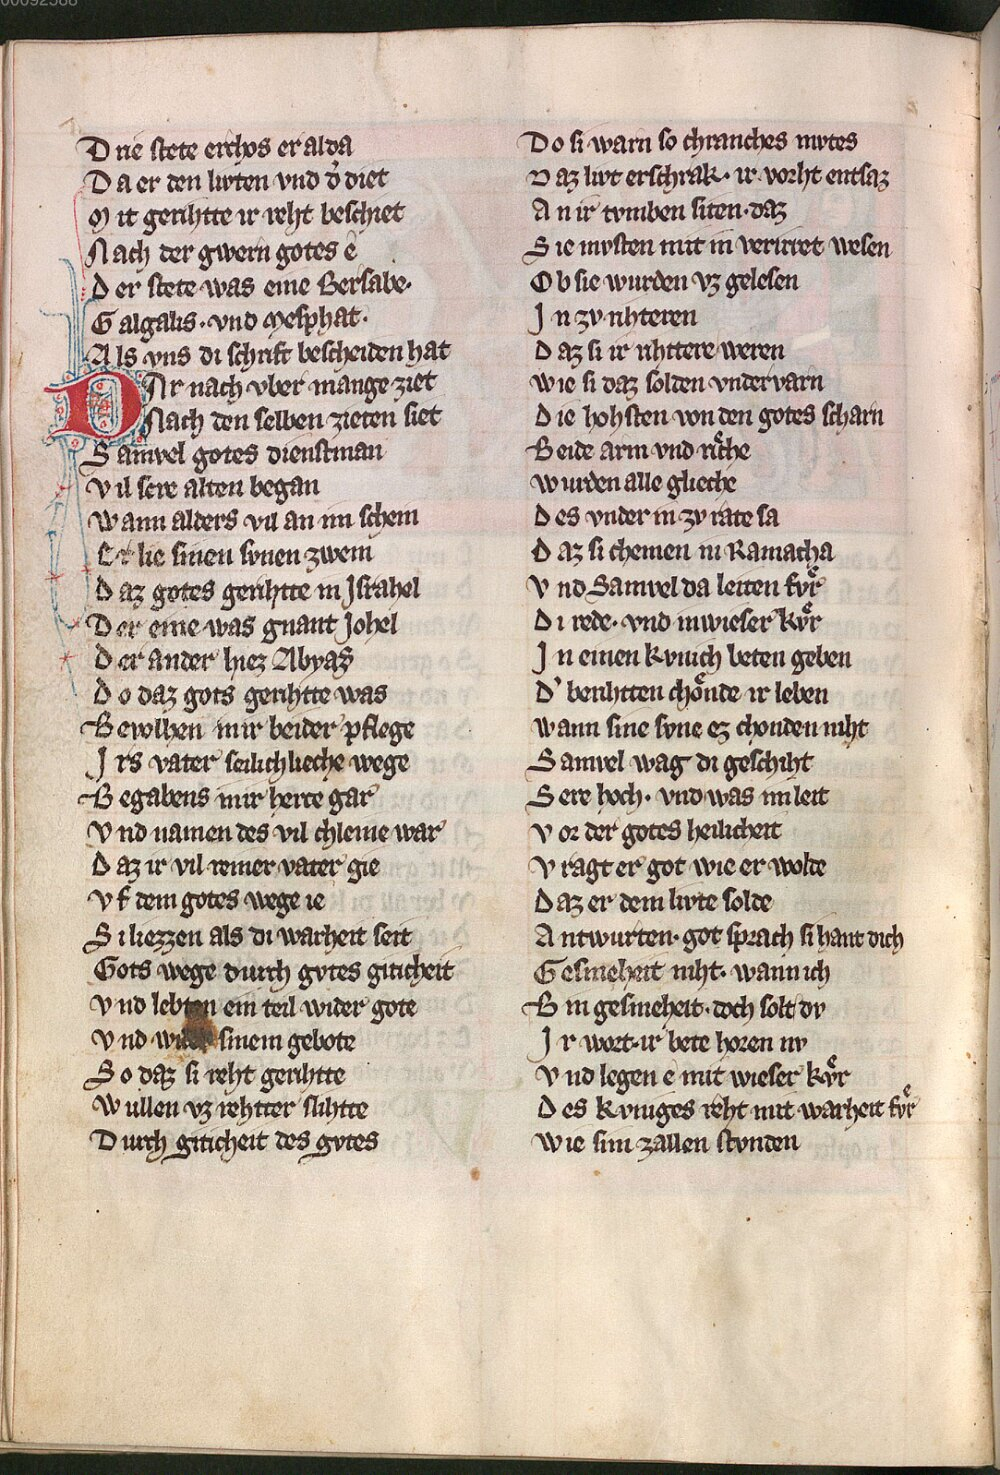 00092588
D rie stete erchos er alda
D a er den livten vnd d' diet
M it gerihtte ir reht beschiet
N ach der gwern gotes e
D er stete was eine Bersabe·
G algalis· vnd Mesphat·
A ls vns di schrift bescheiden hat
DAr nach vber mange ziet
Nach den selben zieten siet
S amvel gotes dienstman
V il sere alten began
W ann alders vil an im schein
Er lie sinen svnen zwein
D az gotes gerihtte in Israhel
D er eine was gnant Johel
D er ander hiez Abyas
D o daz gots gerihtte was
B evolhen mir beider pflege
J rs vater seilichlieche wege
B egabens mir herre gar
V nd namen des vil chleine war
D az ir vil reiner vater gie
V f dem gotes wege ie
S i liezzen als di warheit seit
Gots wege durch gvtes giticheit
V nd lebten ein teil wider gote
V nd wider sinem gebote
S o daz si reht gerihtte
W ullen vz rehtter slihtte
D urch giticheit des gvtes
D o si warn so chranches mvtes
D az livt erschrak· ir vorht entsaz
A n ir tvmben siten· daz
S ie mvsten mit in verirret wesen
O b sie wurden vz gelesen
J n zv rihteren
D az si ir rihttere weren
Wie si daz solden vndervarn
D ie hohsten von den gotes scharn
B eide arm vnd riche
Wurden alle glieche
D es vnder in zv rate sa
D az si chemen in Ramacha
V nd Samvel da leiten fvͤr
D i rede· vnd inwieser kvͤr
J n einen kvnich beten geben
D' berihtten choͤnde ir leben
Wann sine svne ez chonden niht
S amvel wag di geschiht
S ere hoch· vnd was im leit
V or der gotes heilicheit
V ragt er got wie er wolte
D az er dem livte solde
A ntwurten· got sprach si hant dich
G esmeheit niht· wann ich
B in gesmeheit· doch solt dv
J r wort· ir bete horen nv
V nd legen e mit wieser kvͤr
D es kvniges reht mit warheit fvͤr
Wie sim zallen stvnden